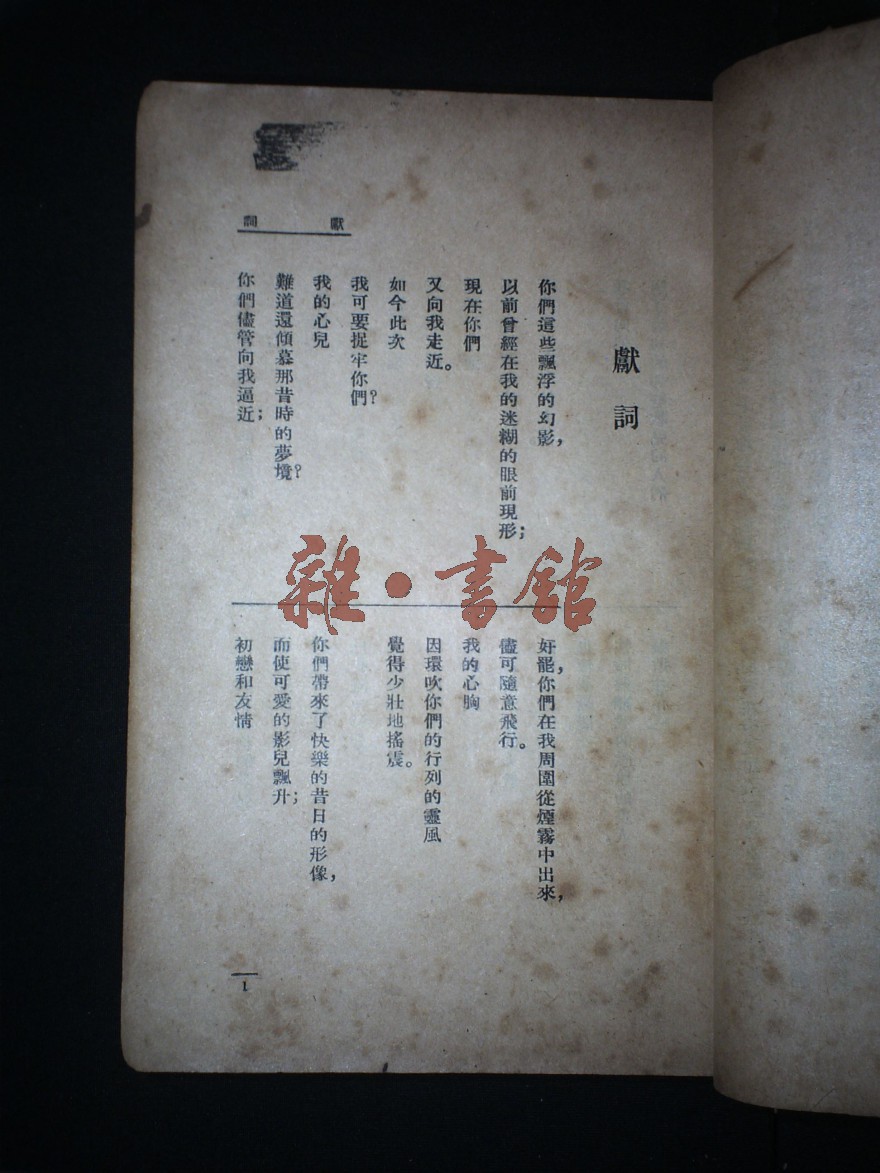 獻詞
獻詞
你們這些飄浮的幻影，
以前曾經在我的迷糊的眼前現形；
現在你們
又向我走近。
如今此次
我可要捉牢你們？
我的心兒
難道還傾慕那昔時的夢境？
你們儘管向我逼近；
好罷，你們在我周圍從煙霧中出來，
儘可隨意飛行。
我的心胸
因環吹你們的行列的靈風
覺得少壯地搖震。
你們帶來了快樂的昔日的形像，
而使可愛的影兒飄升；
初戀和友情
1
雜·書館